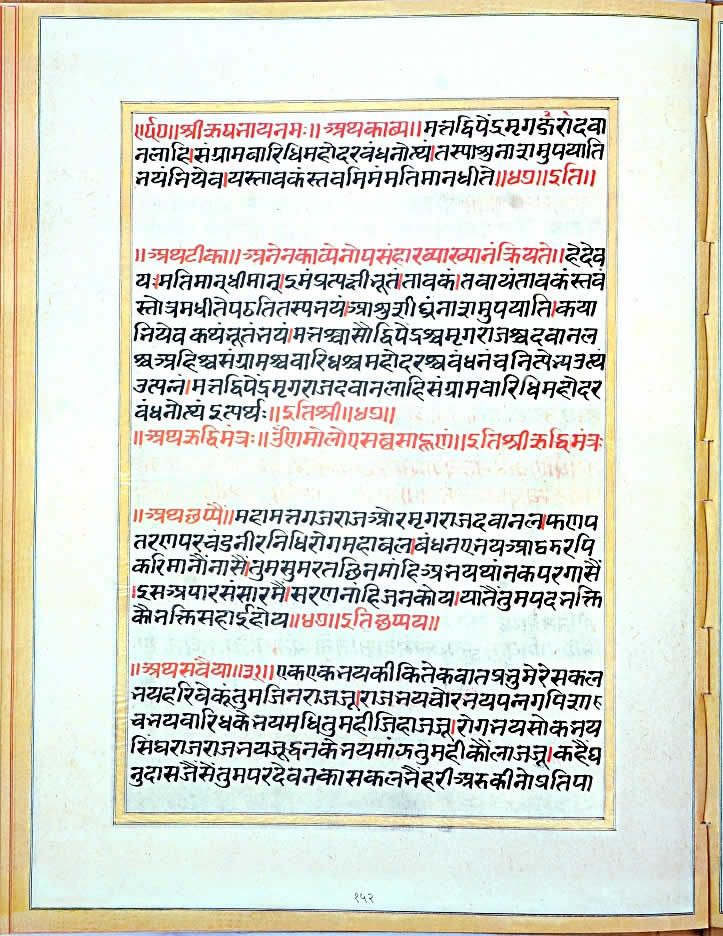 ॥श्रीऋषनायनमः॥ अथकाव्य॥ मत्तद्विपेंद्रमृग दवा
नलाहि।संग्रामवारिधिमहोदरबंधनोत्थं।तस्याशुनाशमुपयाति
नयंनियेव।यस्तावकंस्तवमिमंमतिमानधीते॥४७॥इति॥
॥अथटीका॥अनेनकाव्येनोपसंहारव्याख्यानंक्रियते॥हेदेव
य।मतिमान्धीमान्।इमंप्रत्यक्षीनूतं।तावकं।तवायंतावकंस्तवं
स्तोत्रमधीतेपठतितस्यनयं।आशुशीघ्रंनाशमुपयाति।कया
नियेव कथंनूतंनयं।मत्तश्चासौद्विपेंद्रश्चमृगराजश्चदवानल
श्चअहिश्चसंग्रामश्चवारिधिश्चमहोदरश्चबंधनंच
उत्पन्नं।मत्तद्विपेंद्रमृगराजदवानलाहिसंग्रामवारिधिमहोदर
बंधनोत्थंइत्यर्थः॥इतिश्री॥४७॥
॥अथऋद्धिमंत्रः॥ॐणमोलोएसव्वसाह्णणं॥इतिश्रीऋद्धिमंत्रः
॥अथछप्पै॥महामत्तगजराजऔरमृगराजदवानल।फणप
तिरणपरचंडनीरनिधिरोगमहाबल।बंधनएनय
करिमानौंनासै।तुमसुमरतछिनमांहिअनयथांनकपरगासैं
।इसअपारसंसारमैं।सरणनांहिजनकोय।यातैंतुमपदनक्ति
कौनक्तिसहाईहोय॥४७॥इतिछप्पय॥
॥अथसवैया॥३१॥एकएकनयकीकितेकबातप्रनुमेरेसकल
नयहरिवेकूंतुमजिनराजजू।राजनयचोरनयपनगपिशाच
चनयवारिधकेनयमधितुमहीजिहाजजू।रोगनयसोकनय
सिंघराजराजनयजूद्धनकेनयमांऊतुमहीकौंलाजजू।कहैध
नुदासजैंसैंतुमपरदैवनकासकलनैहरीअरुकीनोप्रतिपा
१५२